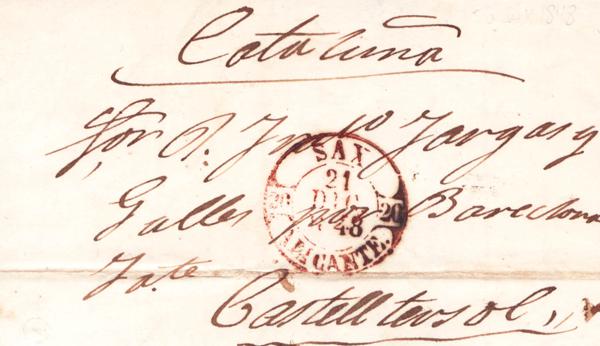 Cataluña
Sor D. Jph Vargas y
Galles por Barcelona
Castelltersol
SAX
21
DIC
48
20
20
ALICANTE.